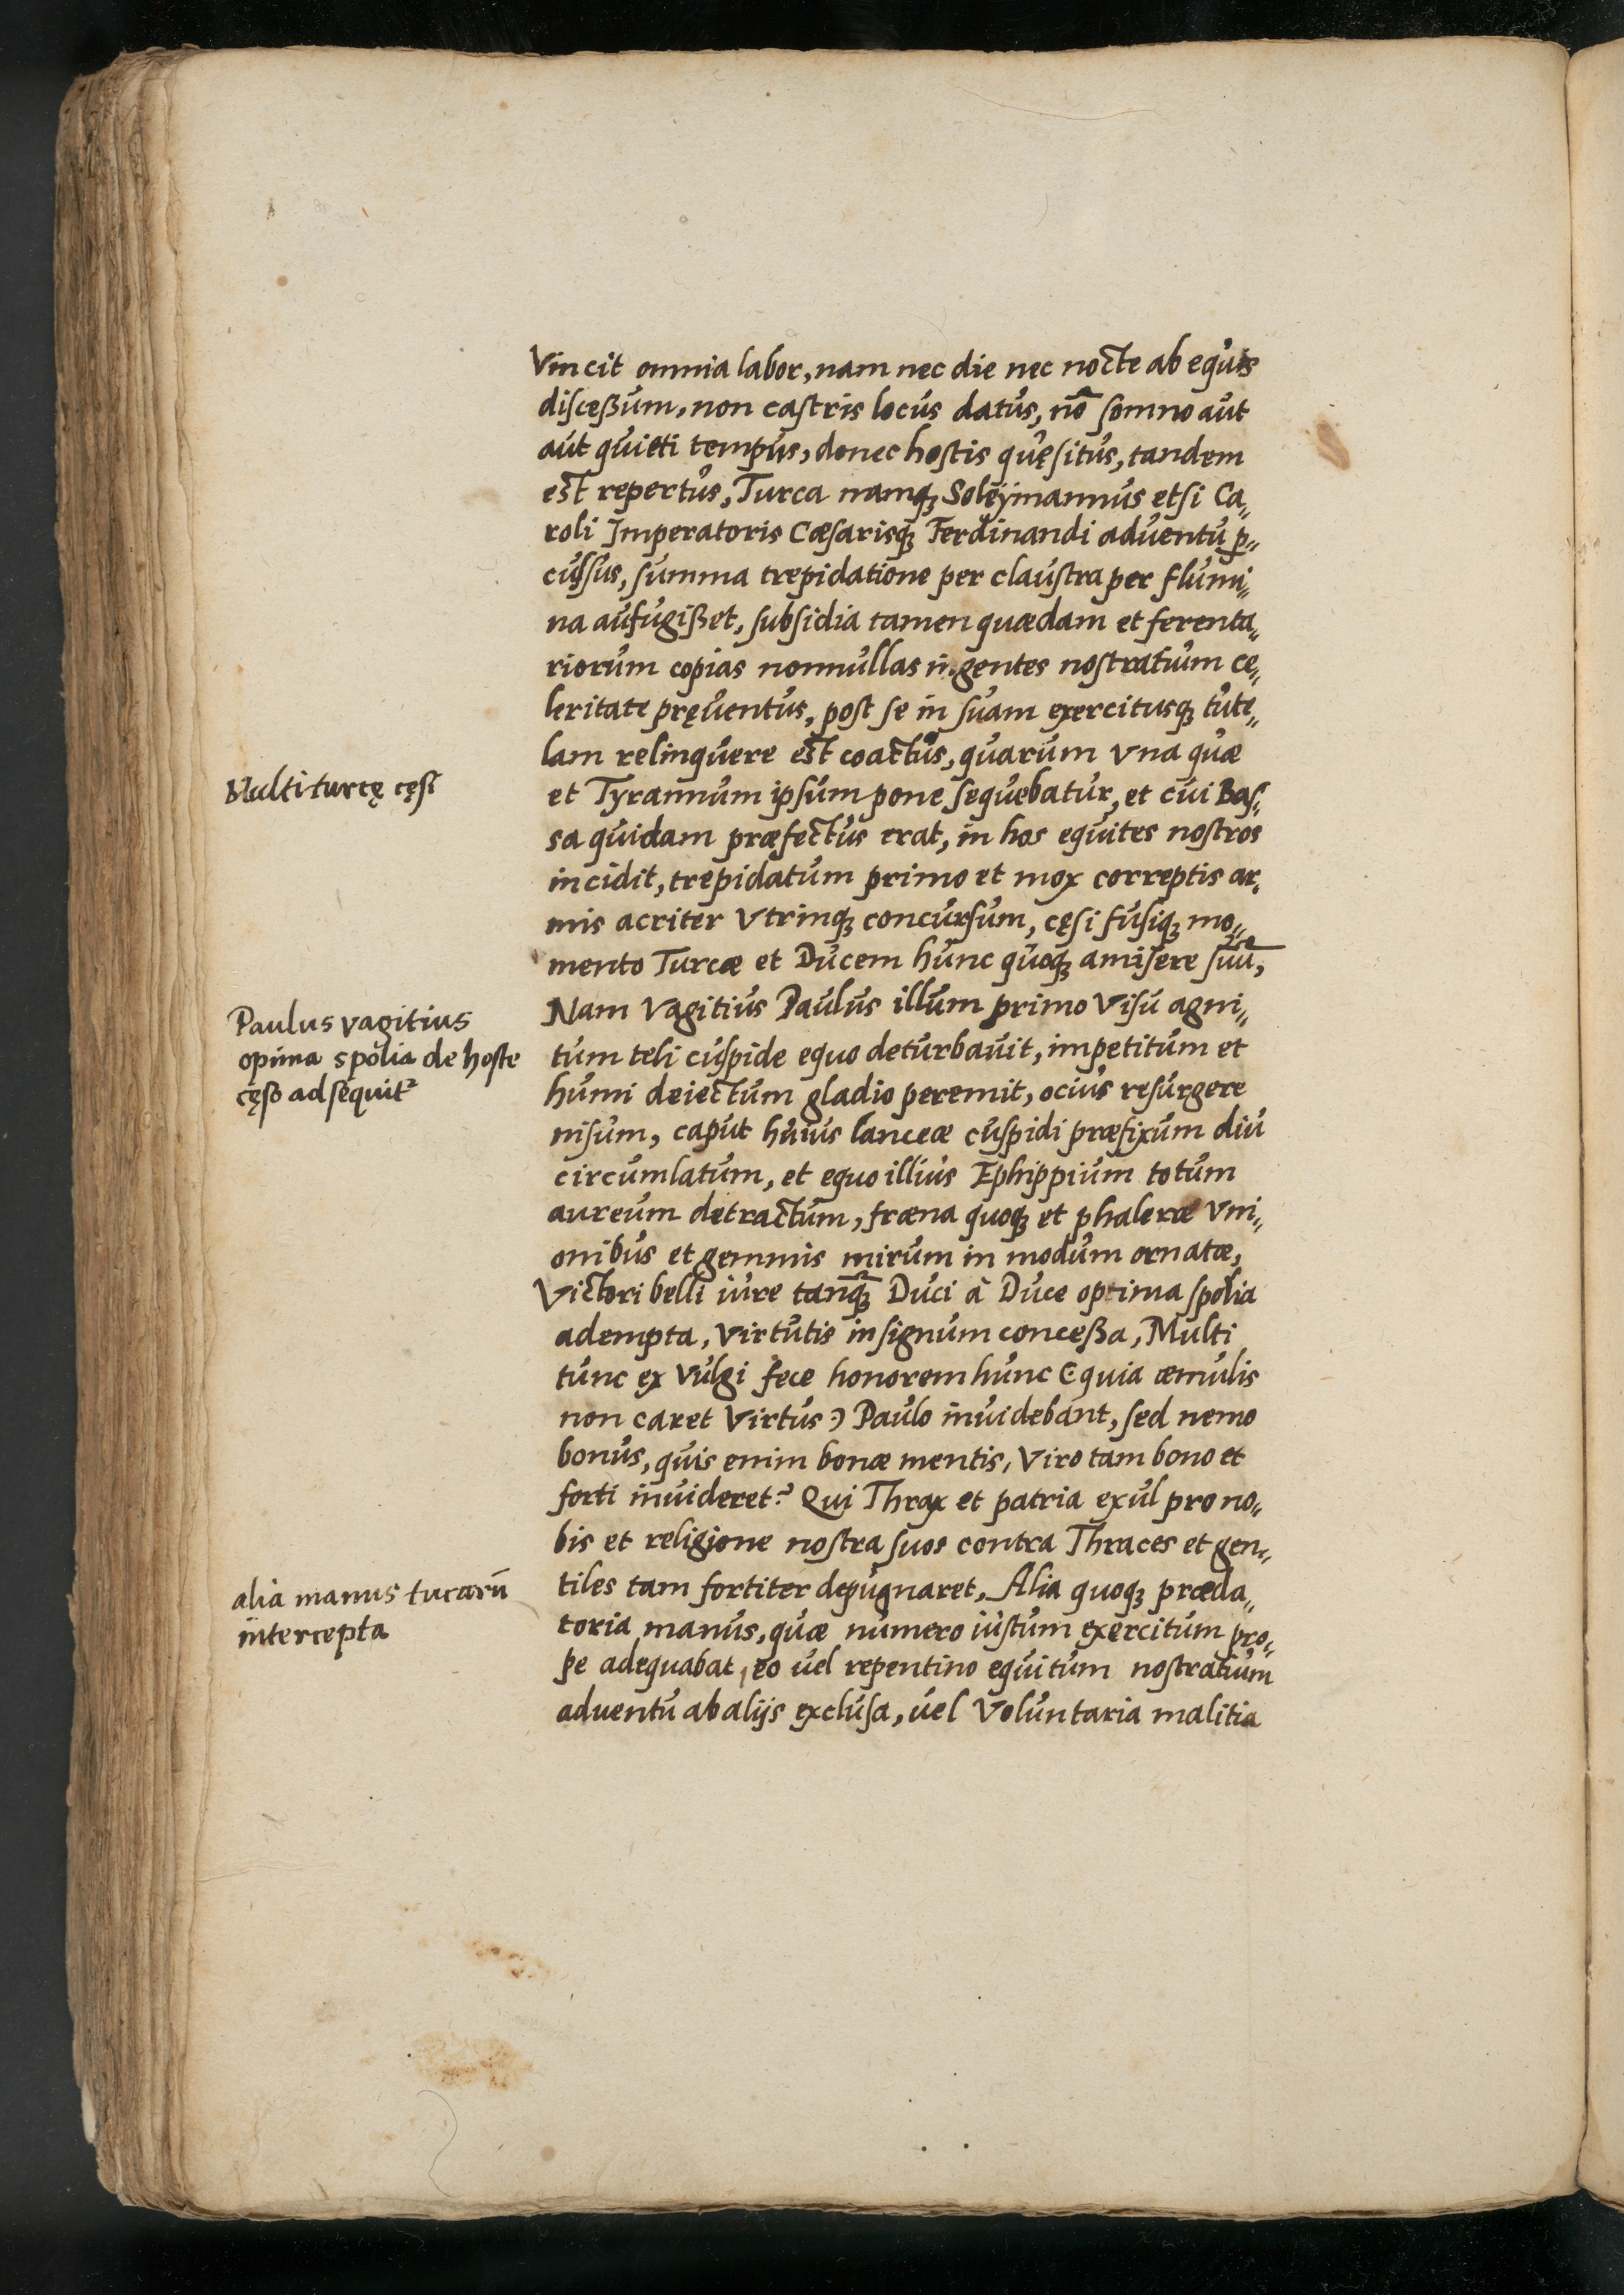 Vincit omnia labor, nam nec die nec nocte ab equis
disceßum, non castris locus datus, nõ somno aut
aut quieti tempus, donec hostis quęsitus, tandem
est repertus, Turca namq; Soleÿmannus etsi Ca„
roli Imperatoris Cæsarisq; Ferdinandi aduentu ꝑ„
culsus, summa trepidatione per claustra per flumi„
na aufugißet, subsidia tamen quædam et ferenta„
riorum copias nonnullas ingentes nostratium ce„
leritate pręuentus, post se in suam exercitusq; tute„
lam relinquere est coactus, quarum vna quæ
Multi turcę cęsi
et Tyrannum ipsum pone sequebatur, et cui Bas„
sa quidam præfectus erat, in hos equites nostros
incidit, trepidatum primo et mox correptis ar„
mis acriter vtrinq; concursum, cęsi fusiq; mo„
mento Turcæ et Ducem hunc quoq; amisere suũ,
Nam Vagitius Paulus illum primo visu agni„
Paulus vagitius
opima spolia de hoste
cęso adsequit²
tum teli cuspide equo deturbauit, impetitum et
humi deiectum gladio peremit, ocius resurgere
nisum, caput huius lanceæ cuspidi præfixum diu
circumlatum, et equo illius Ephippium totum
aureum detractum, fræna quoq; et phaleræ vni„
onibus et gemmis mirum in modum ornatæ,
Victori belli iure tanq̃; Duci à Duce optima spolia
adempta, virtutis insignum conceßa, Multi
tunc ex vulgi fece honorem hunc (quia æmulis
non caret virtus) Paulo inuidebant, sed nemo
bonus, quis enim bonæ mentis, viro tam bono et
forti inuideret? Qui Thrax et patria exul pro no„
bis et religione nostra suos contra Thraces et gen„
tiles tam fortiter depugnaret, Alia quoq; præda„
alia manus turcarũ
intercepta
toria manus, quæ numero iustum exercitum pro„
pe adequabat, eo uel repentino equitum nostratium
aduentu ab alijs exclusa, uel voluntaria malitia